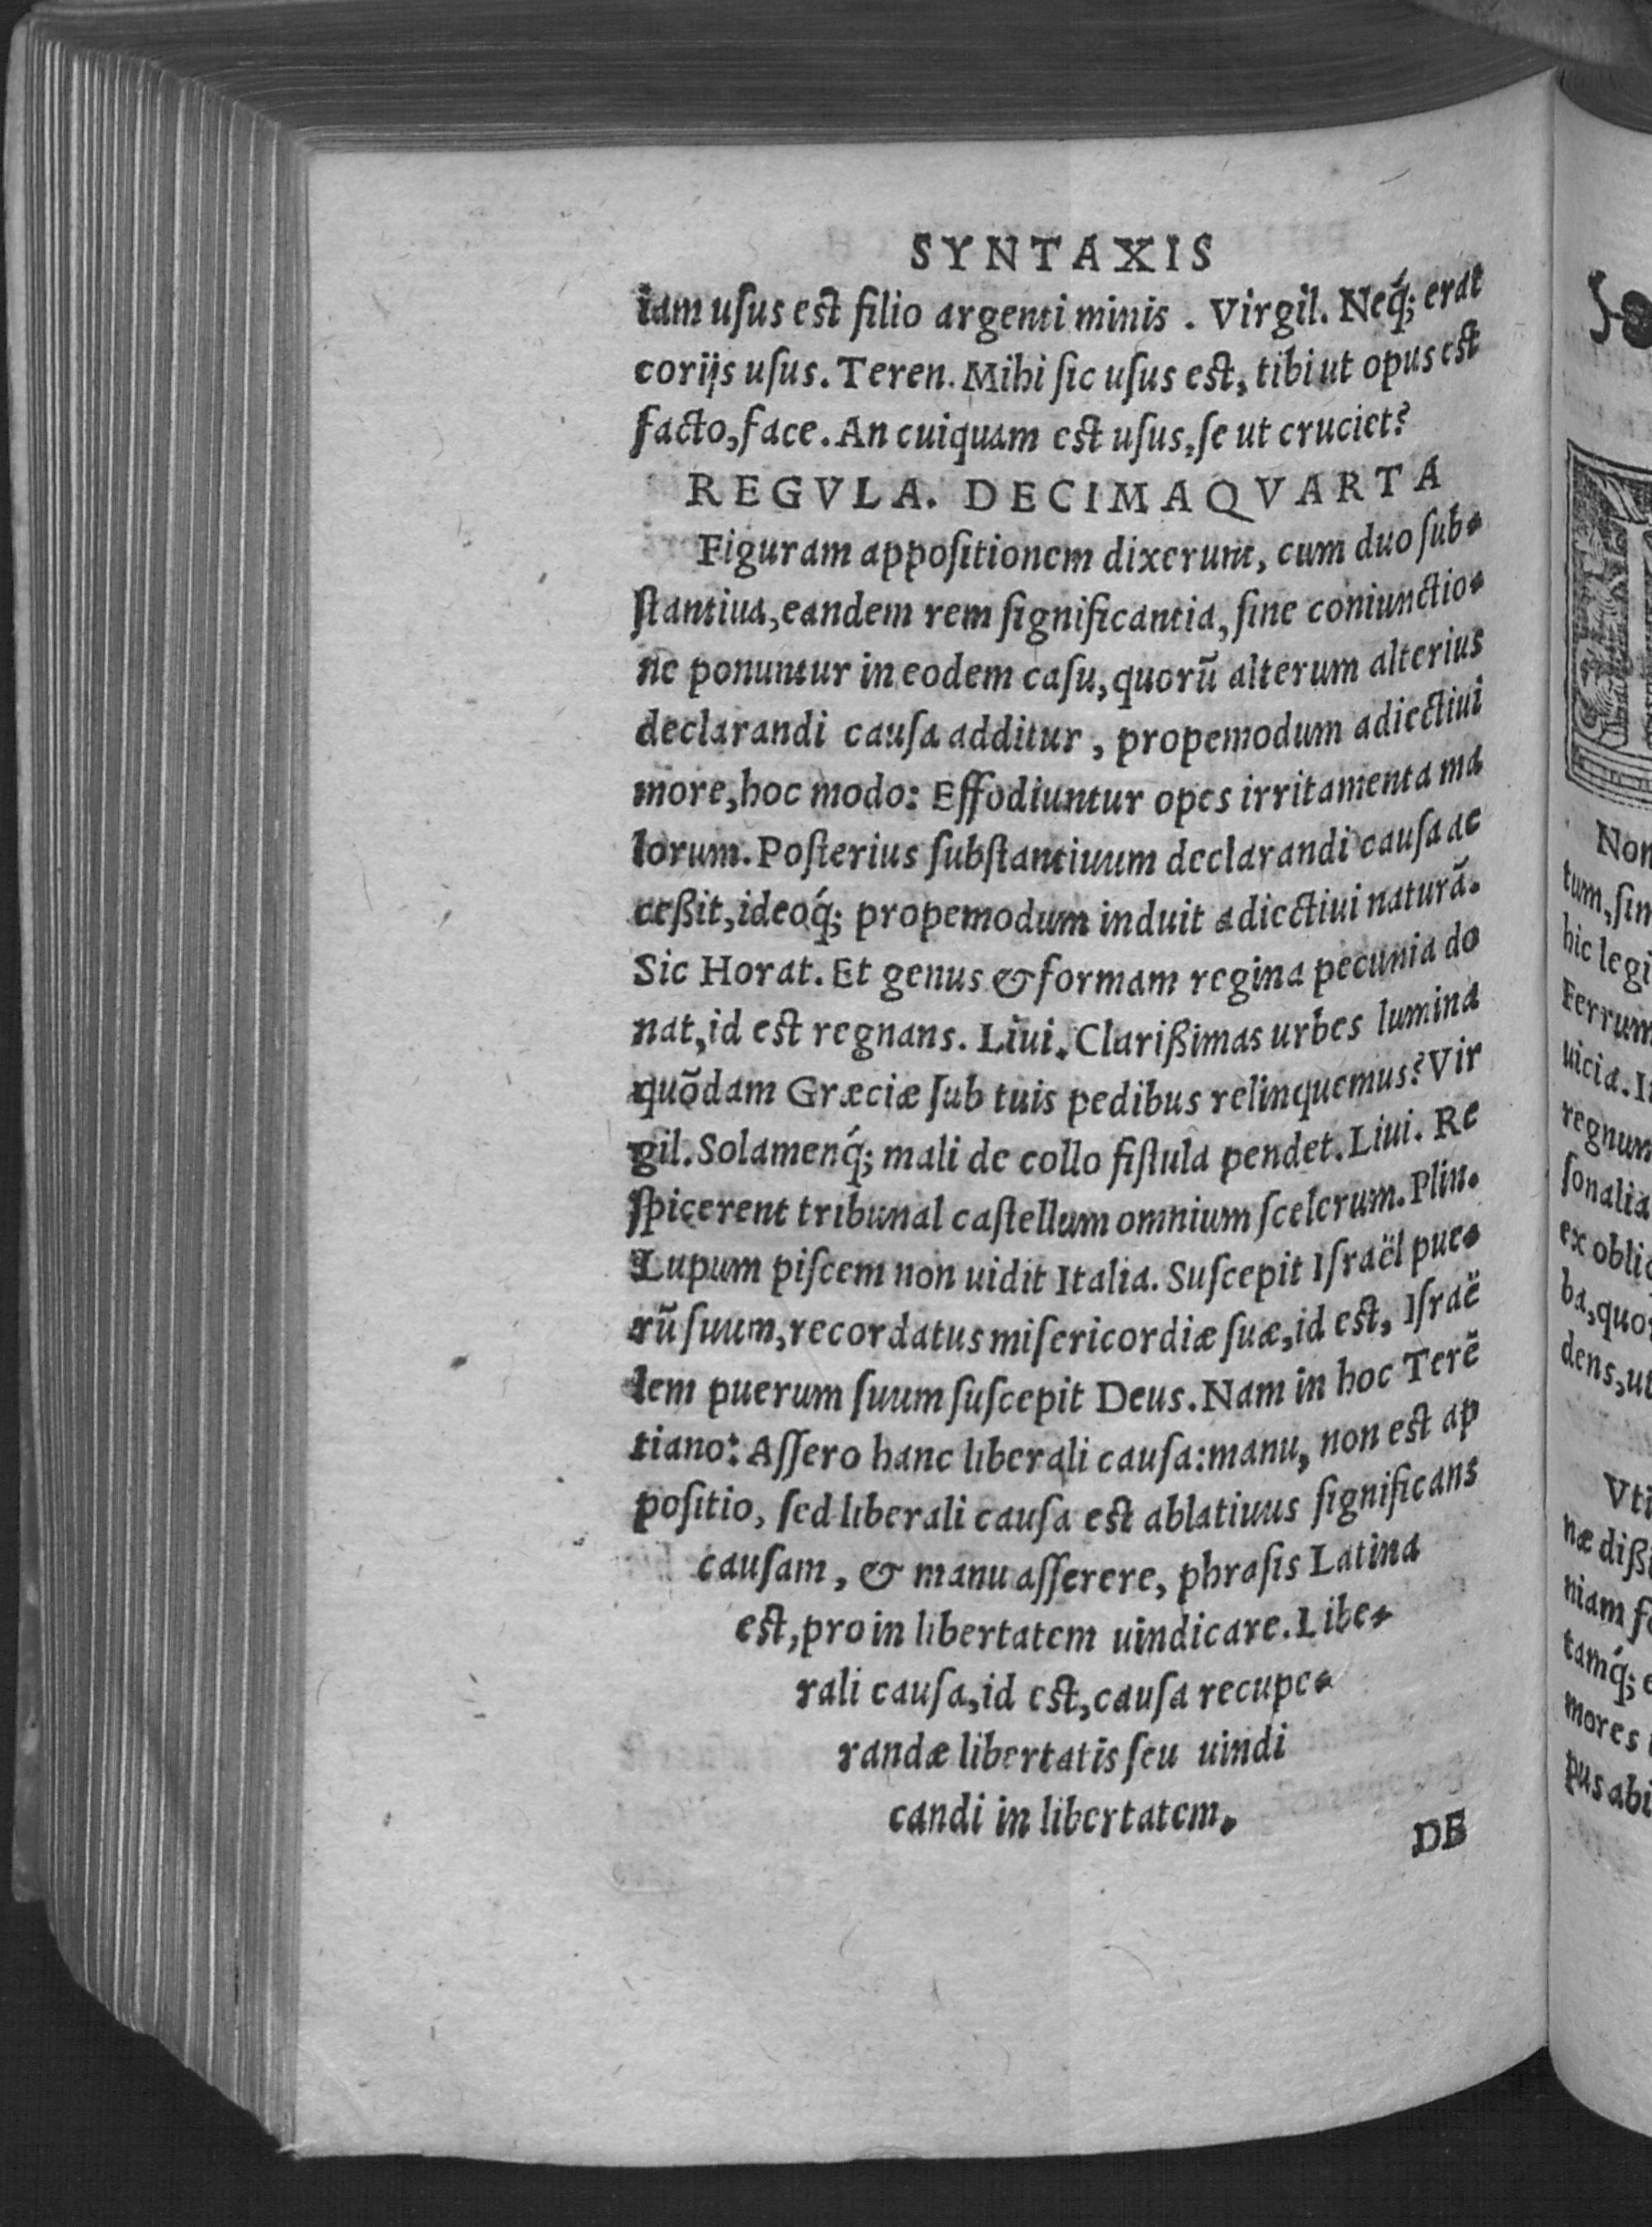 SYNTAXIS
iam uſus est filio argenti minis . Virgil. Neq́; erat
corijs uſus. Teren. Mihi ſic uſus est, tibi ut opus est
facto, face. An cuiquam est uſus, ſe ut cruciet?
REGVLA. DECIMAQVARTA
Figuram appoſitionem dixerunt, cum duo ſub-
ſtantiua, eandem rem ſignificantia, ſine coniunctio-
ne ponuntur in eodem caſu, quorũ alterum alterius
declarandi cauſa additur, propemodum adiectiui
more, hoc modo: Effodiuntur opes irritamenta ma
lorum. Poſterius ſubſtantiuum declarandi cauſa ac
ceßit, ideoq́; propemodum induit adiectiui naturã.
Sic Horat. Et genus & formam regina pecunia do
nat, id est regnans. Liui. Clarißimas urbes lumina
quõdam Græciæ ſub tuis pedibus relinquemus? Vir
gil. Solamenq́; mali de collo fiſtula pendet. Liui. Re
ſpicerent tribunal caſtellum omnium ſcelerum. Plin.
Lupum piſcem non uidit Italia. Suſcepit Iſraël pue-
rũ ſuum, recordatus miſericordiæ ſuæ, id est, Iſraë
lem puerum ſuum ſuſcepit Deus. Nam in hoc Terẽ
tiano: Aſſero hanc liberali cauſa: manu, non est ap
poſitio, ſed liberali cauſa est ablatiuus ſignificans
cauſam, & manu aſſerere, phraſis Latina
est, pro in libertatem uindicare. Libe-
rali cauſa, id est, cauſa recupe-
randæ libertatis ſeu uindi
candi in libertatem.
DE
Non
tum, ſin
hic legi
Ferrum
uicia. I
regnum
ſonalia
ex obli
ba, quo
dens, ut
Vti
næ dißi
niam f
tamq́; e
mores
pus abi